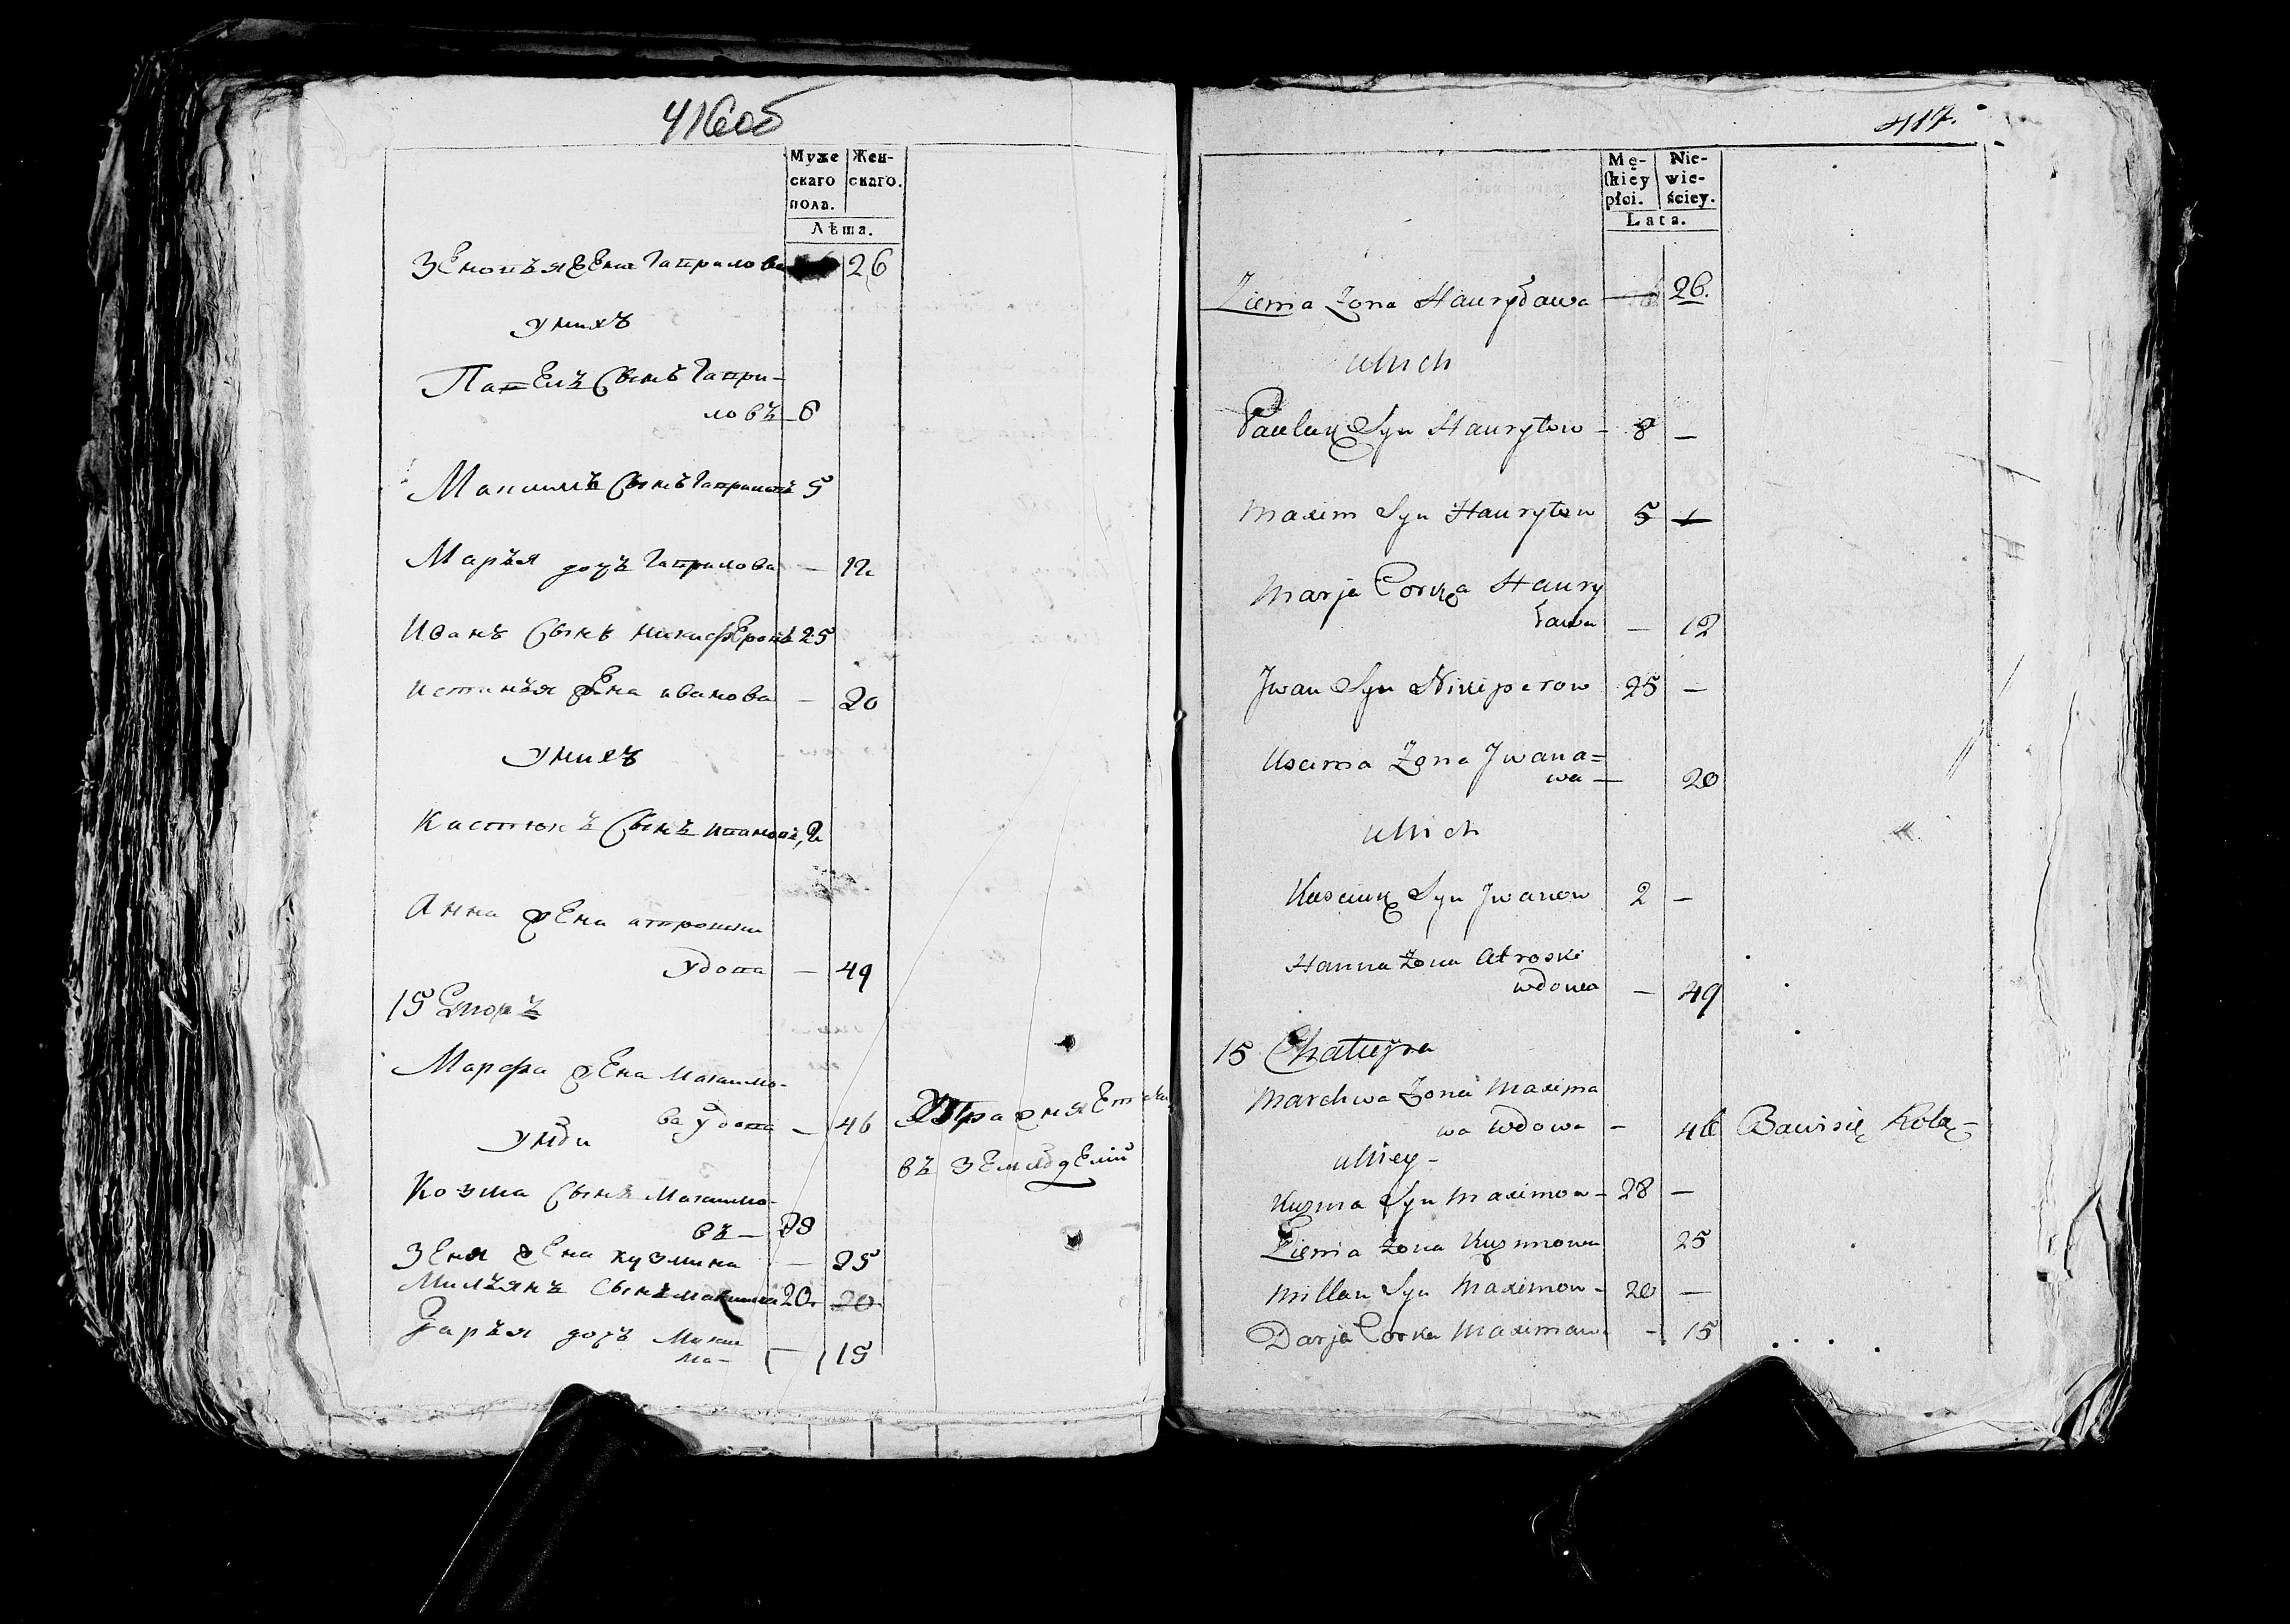 416об
Муже Жен-
скаго скаго.
пола.
Лѣта.
Зеновъя жена Гаврилова 26
у нихъ
Павелъ сынъ Гаври-
ловъ 8
Максимъ сынъ Гавриловъ 5
Маръя дочъ Гаврилова — 12
Иванъ сынъ никиферовъ 25
истинъя жена иванова — 20
у нихъ
Кастюкъ сынъ ивановъ 2
Анна жена атрошки
удова — 49
15 Дворъ
Марфа жена максимо-
ва удова — 46 Упражняется
у ней въ земледелiи
Козма сынъ максимо-
въ — 28
Зеня жена кузмина — 25
Милъянъ сынъ максимов 20 20
Даръя дочъ Макси
мо- — 15
417.
Mę- Nie-
ſkiey wie-
płci. ściey.
Lata.
Zienia Zona Hauryława — 26.
u Nich
Pauluk Syn Hauryłow — 8 —
Maxim Syn Hauryłow 5 —
Marja Corka Haury
ława — 12
Jwan Syn Nikiperow 25 —
Uscinia Zona Jwana=
wa — 20
u Nich
Kasciuk Syn Jwanow 2 —
Hanna Zona Atroski
wdowa — 49
15 Chatupa
Marchwa Zona Maxima
wa Wdowa — 46 Bawi się Rolą-
u Niey —
Kuzma Syn Maximow — 28 —
Zienia Zona Kuzmowa 25
Millan Syn Maximow — 20 —
Darja Corka Maximawa — 15